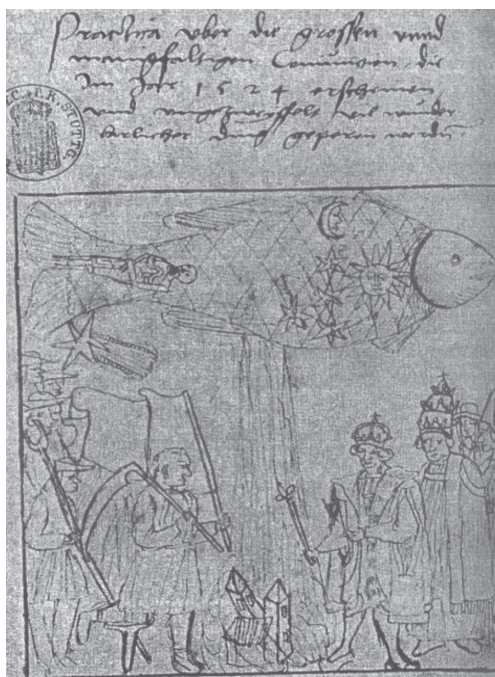 Practica vber die grossen vnnd
manigfaltigen Coniunction die
Im Jar 1524 erscheinen
vnd vngezweiffelt vil wunder
barlicher ding geperen werdn